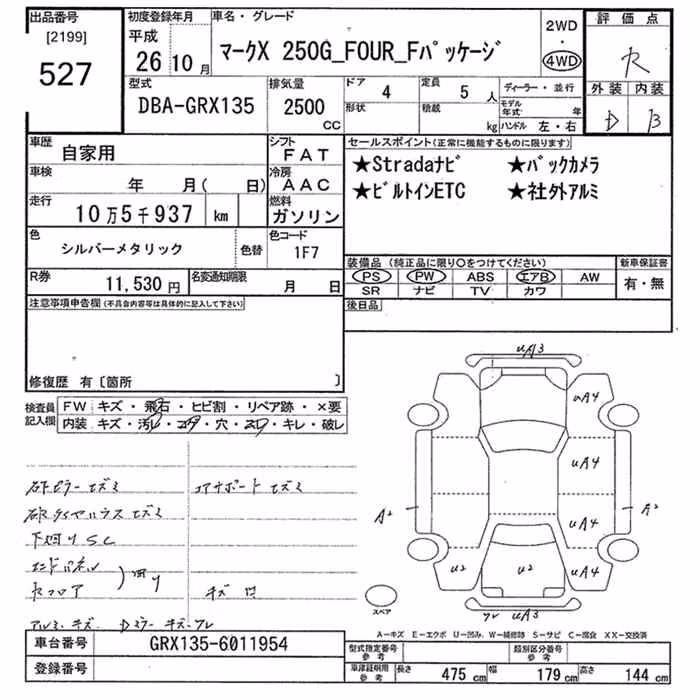 出品番号
[2199]
527
初度登録年月
平成
26年10月
車名・グレード
マークX 250G_FOUR_Fパッケージ
2WD
・
4WD
評価点
R
外装 内装
D B
型式
DBA-GRX135
排気量
2500
cc
ドア 4
形状
定員 5 人
積載 kg
ディーラー・並行
モデル年式 年
ハンドル 左・右
車歴
自家用
シフト
FAT
車検
年 月( 日)
冷房
AAC
走行
10万5千937 km
燃料
ガソリン
色
シルバーメタリック
色替
色コード
1F7
R券
11,530円
名変通知期限
月 日
セールスポイント(正常に機能するものに限ります)
★Stradaナビ ★バックカメラ
★ビルトインETC ★社外アルミ
装備品(純正品に限り○をつけてください)
PS PW ABS エアB AW
SR ナビ TV カワ
新車保証書
有・無
後日品
注意事項申告欄(不具合内容等は具体的に記入して下さい)
修復歴 有〔箇所 〕
検査員
記入欄
FW キズ・飛石・ヒビ割・リペア跡・×要
内装 キズ・汚レ・コゲ・穴・スレ・キレ・破レ
コアサポートヒズミ
下廻りSC
キズ
アルミキズ Dミラーキズ
uA3
uA4
uA4
uA4
uA4
A2
A2
u2
uA3
スペア
A-キズ E-エクボ U-凹み W-補修跡 S-サビ C-腐食 XX-交換済
車台番号
GRX135-6011954
登録番号
型式指定番号
参考
類別区分番号
参考
車庫証明用
参考
長さ 475 cm 幅 179 cm 高さ 144 cm